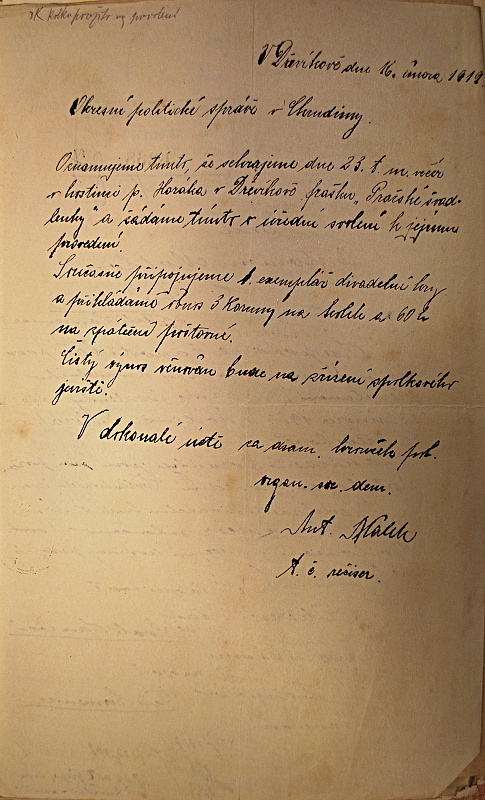 3K kolku použito na povolení
V Dřevíkově dne 16. února 1919.
Okresní politické správě v Chrudimy.
Oznamujeme tímto, že sehrajeme dne 23. t. m. večer
v hostinci p. Horáka v Dřevíkově frašku „Pražské švad-
lenky" a žádáme tímto o úřední svolení k jejímu
provedení.
Současně připojujeme 1. exemplář divadelní hry
a přikládáme obnos 3 koruny na kolek a 60 h
na zpáteční poštovné.
Čistý výnos věnován bude na zřízení spolkového
jeviště.
V dokonalé úctě za dram. kroužek pol.
organ. soc. dem.
Ant. Málek
t. č. režiser.